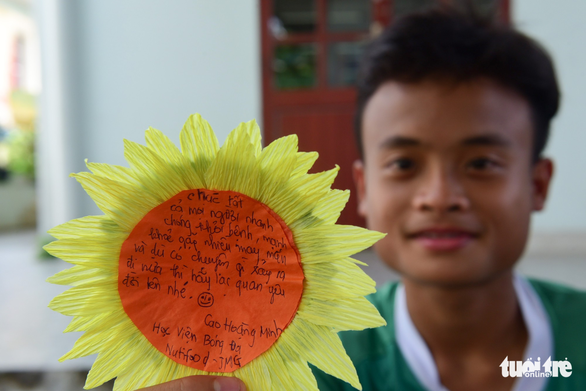 chúc tất
cả mọi người nhanh
chóng khỏi bệnh, mạnh
khoẻ gặp nhiều may mắn
và dù có chuyện gì xảy ra
đi nữa thì hãy lạc quan yêu
đời lên nhé. ☺
Cao Hoàng Minh
Học Viện Bóng Đá
Nutifood - JMG
tuổi trẻ
online